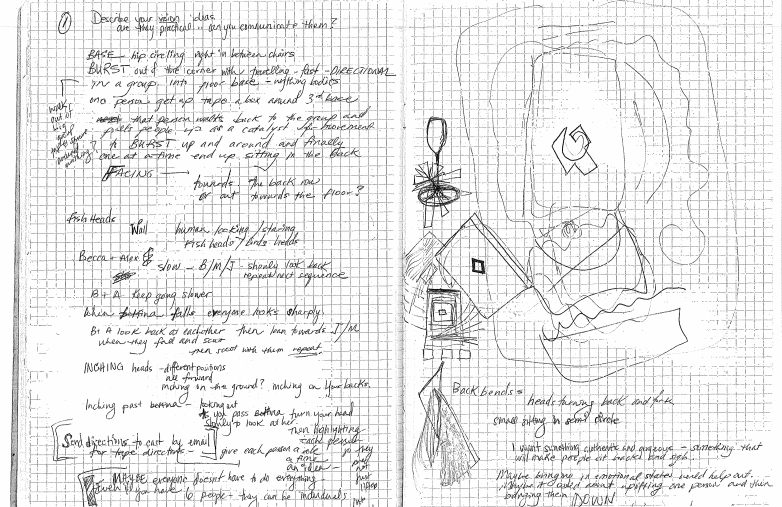 ① Describe your vision ideas
are they practical... can you communicate them?
BASE - hip circling right in between chairs
BURST out of the corner with travelling - fast - DIRECTIONAL
in a group into floor base - writhing bodies
one person get up tape a box around 3rd base
that person walks back to the group and
pulls people up as a catalyst for movement
to BURST up and around and finally
one at a time end up sitting in the back
FACING
towards the back row
or out towards the floor?
Fish Heads
Wall human looking / staring
fish heads / birds heads
Becca + Alex
slow - B/M/J - slowly look back
repeat next sequence
B + A - keep going slower
When Bettina falls everyone looks sharply.
B + A look back at eachother then lean towards J/M
when they fall and scoot
then scoot with them repeat
INCHING heads - different positions
all forward
inching on the ground? inching on your backs.
Inching past Bettina - looking out
as you pass Bettina turn your head
slowly to look at her
then highlighting
each person
Send directions to cast by email
for tape directions -
give each person a role
a time
an idea
so they
not
just
MAYBE everyone doesn't have to do everything -
Even if you have 6 people - they can be individuals
Back bends =
heads turning back and forth
small sitting in semi circle
I want something authentic and gorgeous - something that
will make people sit back and sigh.
Maybe bringing in emotional states would help out.
Maybe it could about uplifting one person and then
bringing them DOWN